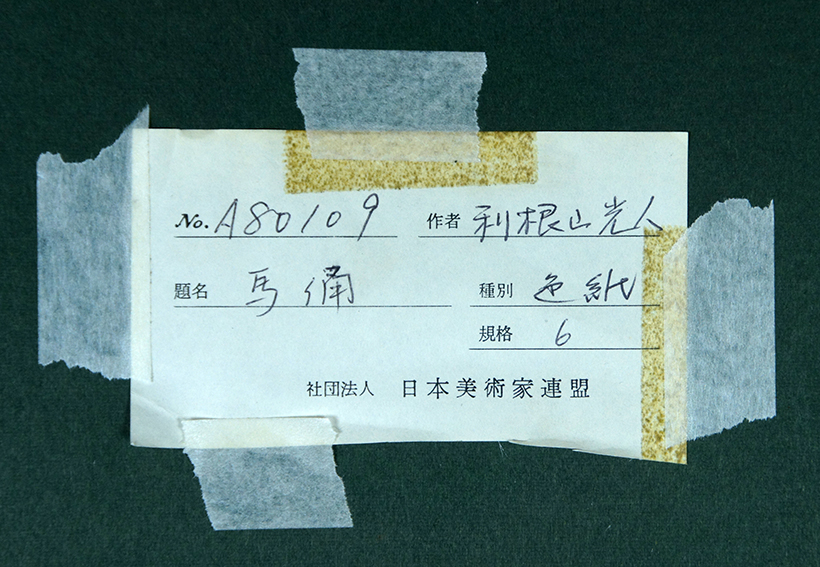 No. A80109 作者 利根山光人
題名 馬俑 種別 色紙
規格 6
社団法人 日本美術家連盟